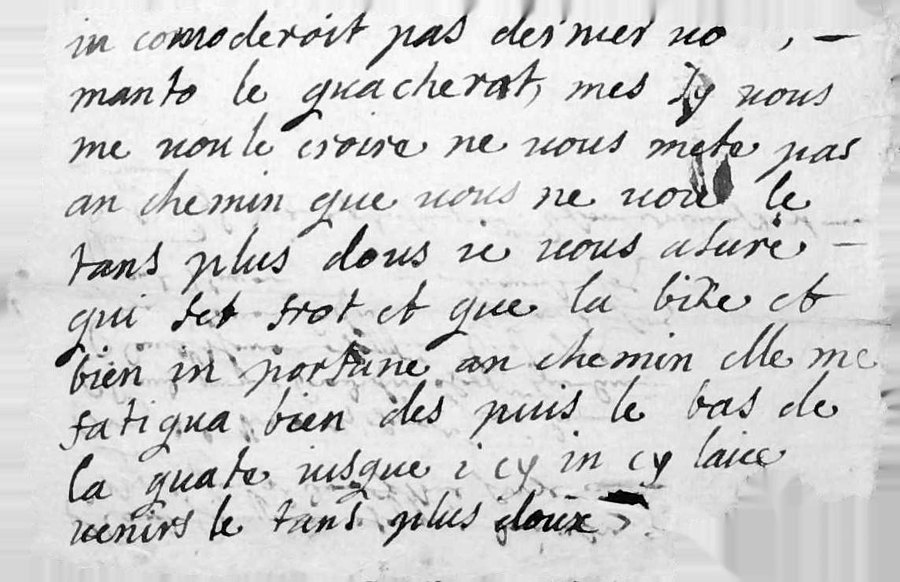 in comoderoit pas desmer uo , —
manto le guacherot, mes Iy uous
me uoule croire ne uous mete pas
an chemin que uous ne uoie le
tans plus dous ie uous asure —
qui fet frot et que la bise et
bien in portune an chemin elle me
fatigua bien des puis le bas de
la guate iusque i cy in cy laice
uenirs le tans plus doux